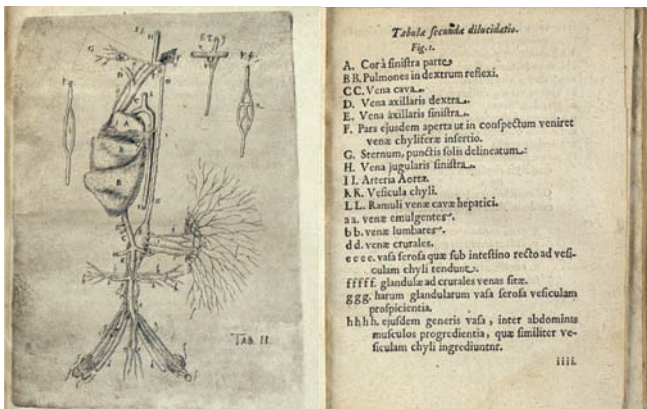 TAB. II.
Tabulæ secundæ dilucidatio.
Fig. 1.
A. Cor à sinistra parte.
B B. Pulmones in dextrum reflexi.
C C. Vena cava.
D. Vena axillaris dextra.
E. Vena axillaris sinistra.
F. Pars ejusdem aperta ut in conspectum veniret
venæ chyliferæ insertio.
G. Sternum, punctis solis delineatum.
H. Vena jugularis sinistra.
I I. Arteria Aorta.
K K. Vesicula chyli.
L L. Ramuli venæ cavæ hepatici.
a a. venæ emulgentes.
b b. venæ lumbares.
d d. venæ crurales.
e e e e. vasa serosa quæ sub intestino recto ad vesi-
culam chyli tendunt.
f f f f f. glandulæ ad crurales venas sitæ.
g g g. harum glandularum vasa serosa vesiculam
prospicientia.
h h h h. ejusdem generis vasa, inter abdominis
musculos progredientia, quæ similiter ve-
siculam chyli ingrediuntur.
i i i i.